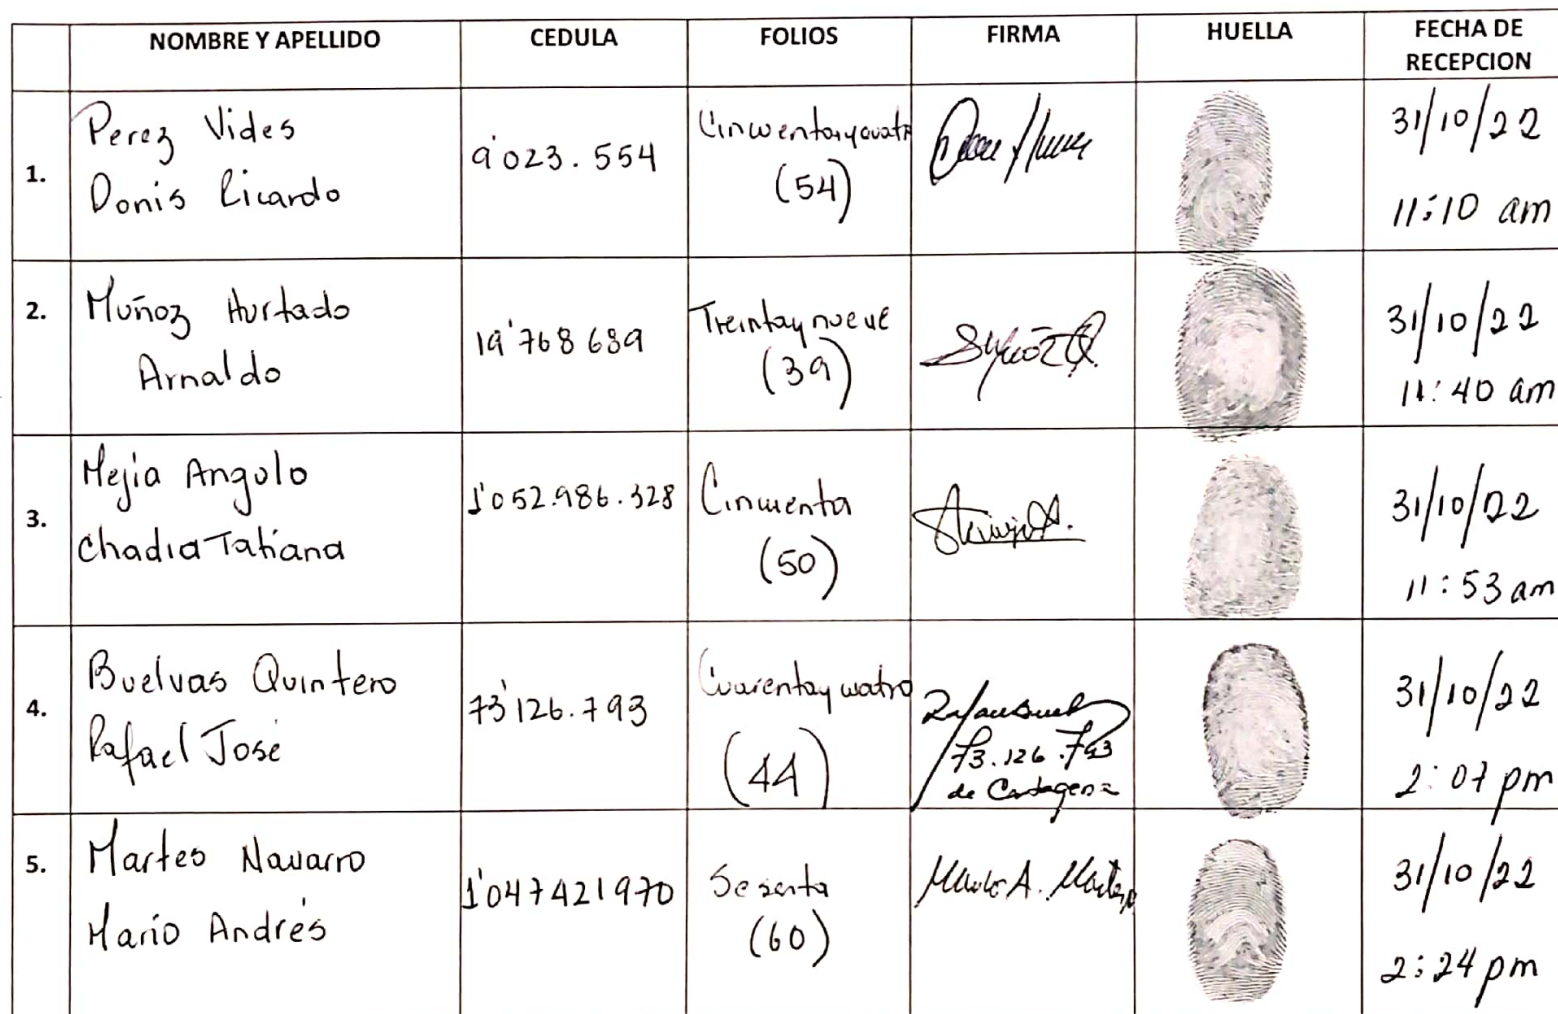 NOMBRE Y APELLIDO CEDULA FOLIOS FIRMA HUELLA FECHA DE RECEPCION
1. Perez Vides Donis Ricardo 9'023.554 Cincuentaycuatro (54) 31/10/22 11:10 am
2. Muñoz Hurtado Arnaldo 19'768689 Treintaynueve (39) 31/10/22 11:40 am
3. Mejia Angulo Chadia Tatiana 1'052.986.328 Cincuenta (50) 31/10/22 11:53 am
4. Buelvas Quintero Rafael José 73'126.793 Cuarentaycuatro (44) 73.126.793 de Cartagena 31/10/22 2:07 pm
5. Martes Navarro Mario Andrés 1'047421970 Sesenta (60) Mario A. Martes 31/10/22 2:24 pm